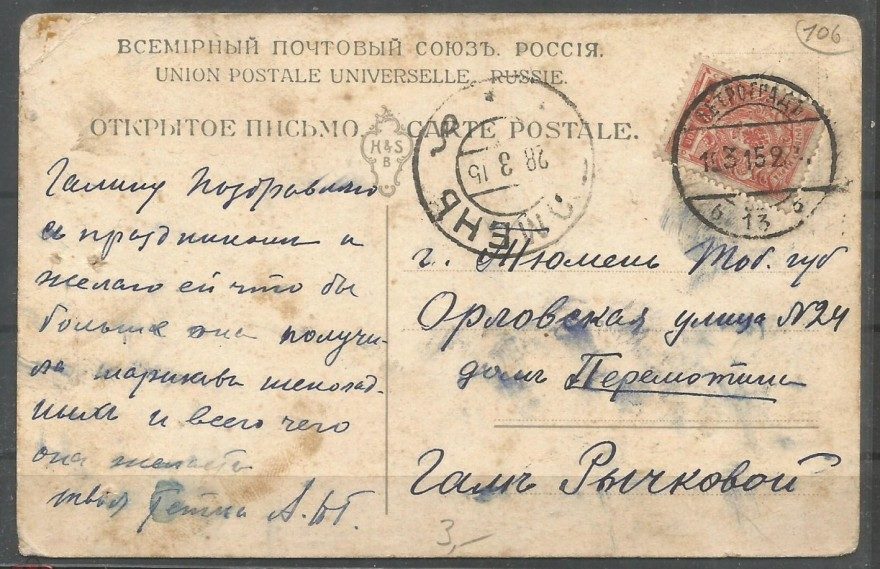 106
ВСЕМІРНЫЙ ПОЧТОВЫЙ СОЮЗЪ. РОССІЯ.
UNION POSTALE UNIVERSELLE. RUSSIE.
ОТКРЫТОЕ ПИСЬМО. CARTE POSTALE.
H & S
B
28 3 15
ПЕТРОГРАДЪ
3 15
13
Галину поздравляю
съ праздникомъ и
желаю ей что бы
больше она получи-
ла шоколад-
ныхъ и всего чего
она желаетъ
твоя А.
г. Тюмень Тоб. губ
Орловская улица №24
домъ
Галѣ Рычковой
3,-